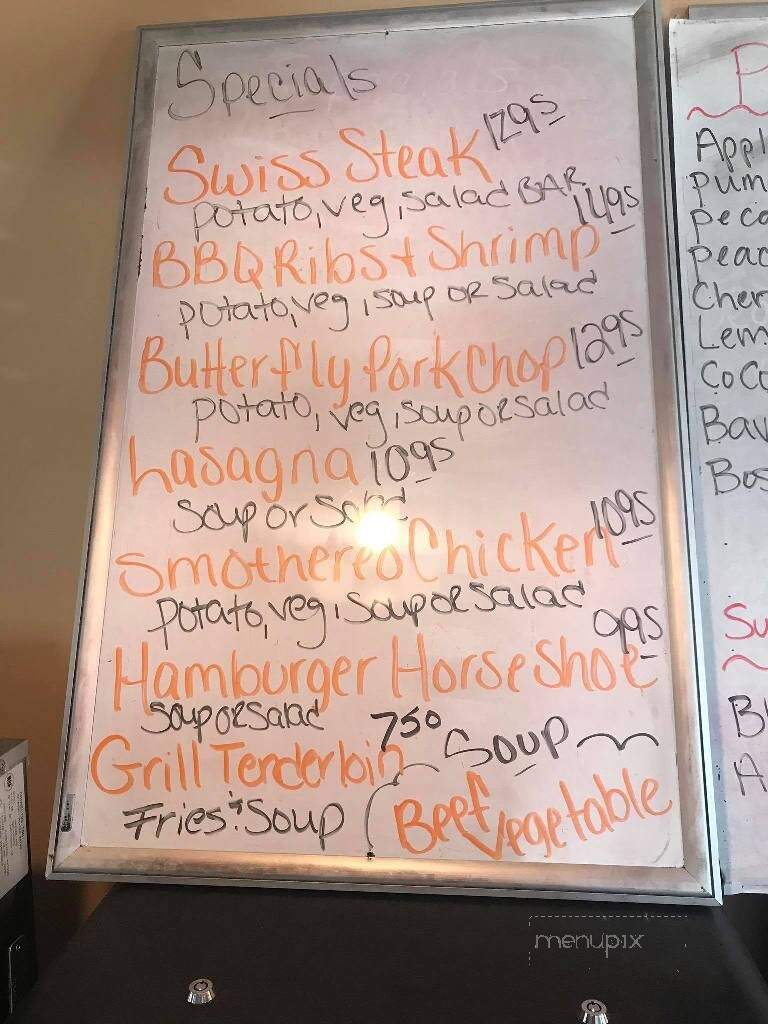 Specials
Swiss Steak 1295
potato, veg, salad BAR
BBQ Ribs + Shrimp 1495
potato, veg, soup OR Salad
Butterfly Pork Chop 1295
potato, veg, soup OR salad
Lasagna 1095
Soup or Salad
Smothered Chicken 1095
potato, veg, Soup OR Salad
Hamburger Horse Shoe 995
Soup OR Salad
Grill Tenderloin 750
Fries + Soup
Soup
Beef Vegetable
Appl
pum
peca
peac
Cher
Lem
CoCo
Bav
Bos
Su
menupix